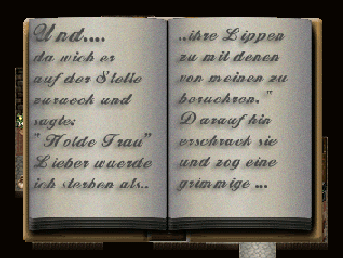 Und....
da wich er
auf der Stelle
zurueck und
sagte:
"Holde Frau"
Lieber wuerde
ich sterben als..
..ihre Lippen
zu mit denen
von meinen zu
beruehren."
Darauf hin
erschrack sie
und zog eine
grimmige ...